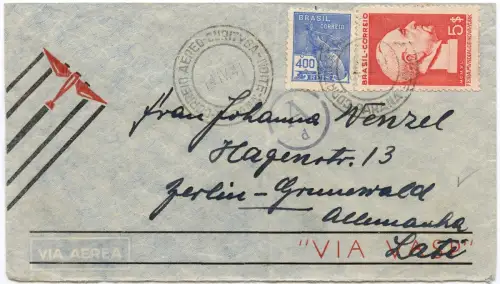 CORREIO AEREO CURITYBA
BRASIL
400
CORREIO
BRASIL-CORREIO
5$
PARANA
A
P
Frau Johanna Wenzel
Hagenstr. 13
Berlin-Grunewald
Allemanha
VIA AEREA
"VIA VASP"
Lati